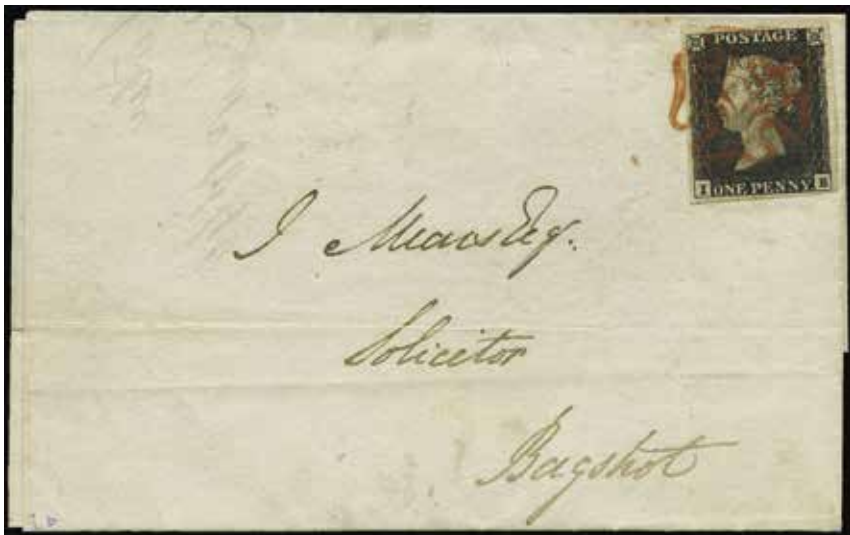 POSTAGE
I ONE PENNY B
J Mears Esq.
Solicitor
Bagshot